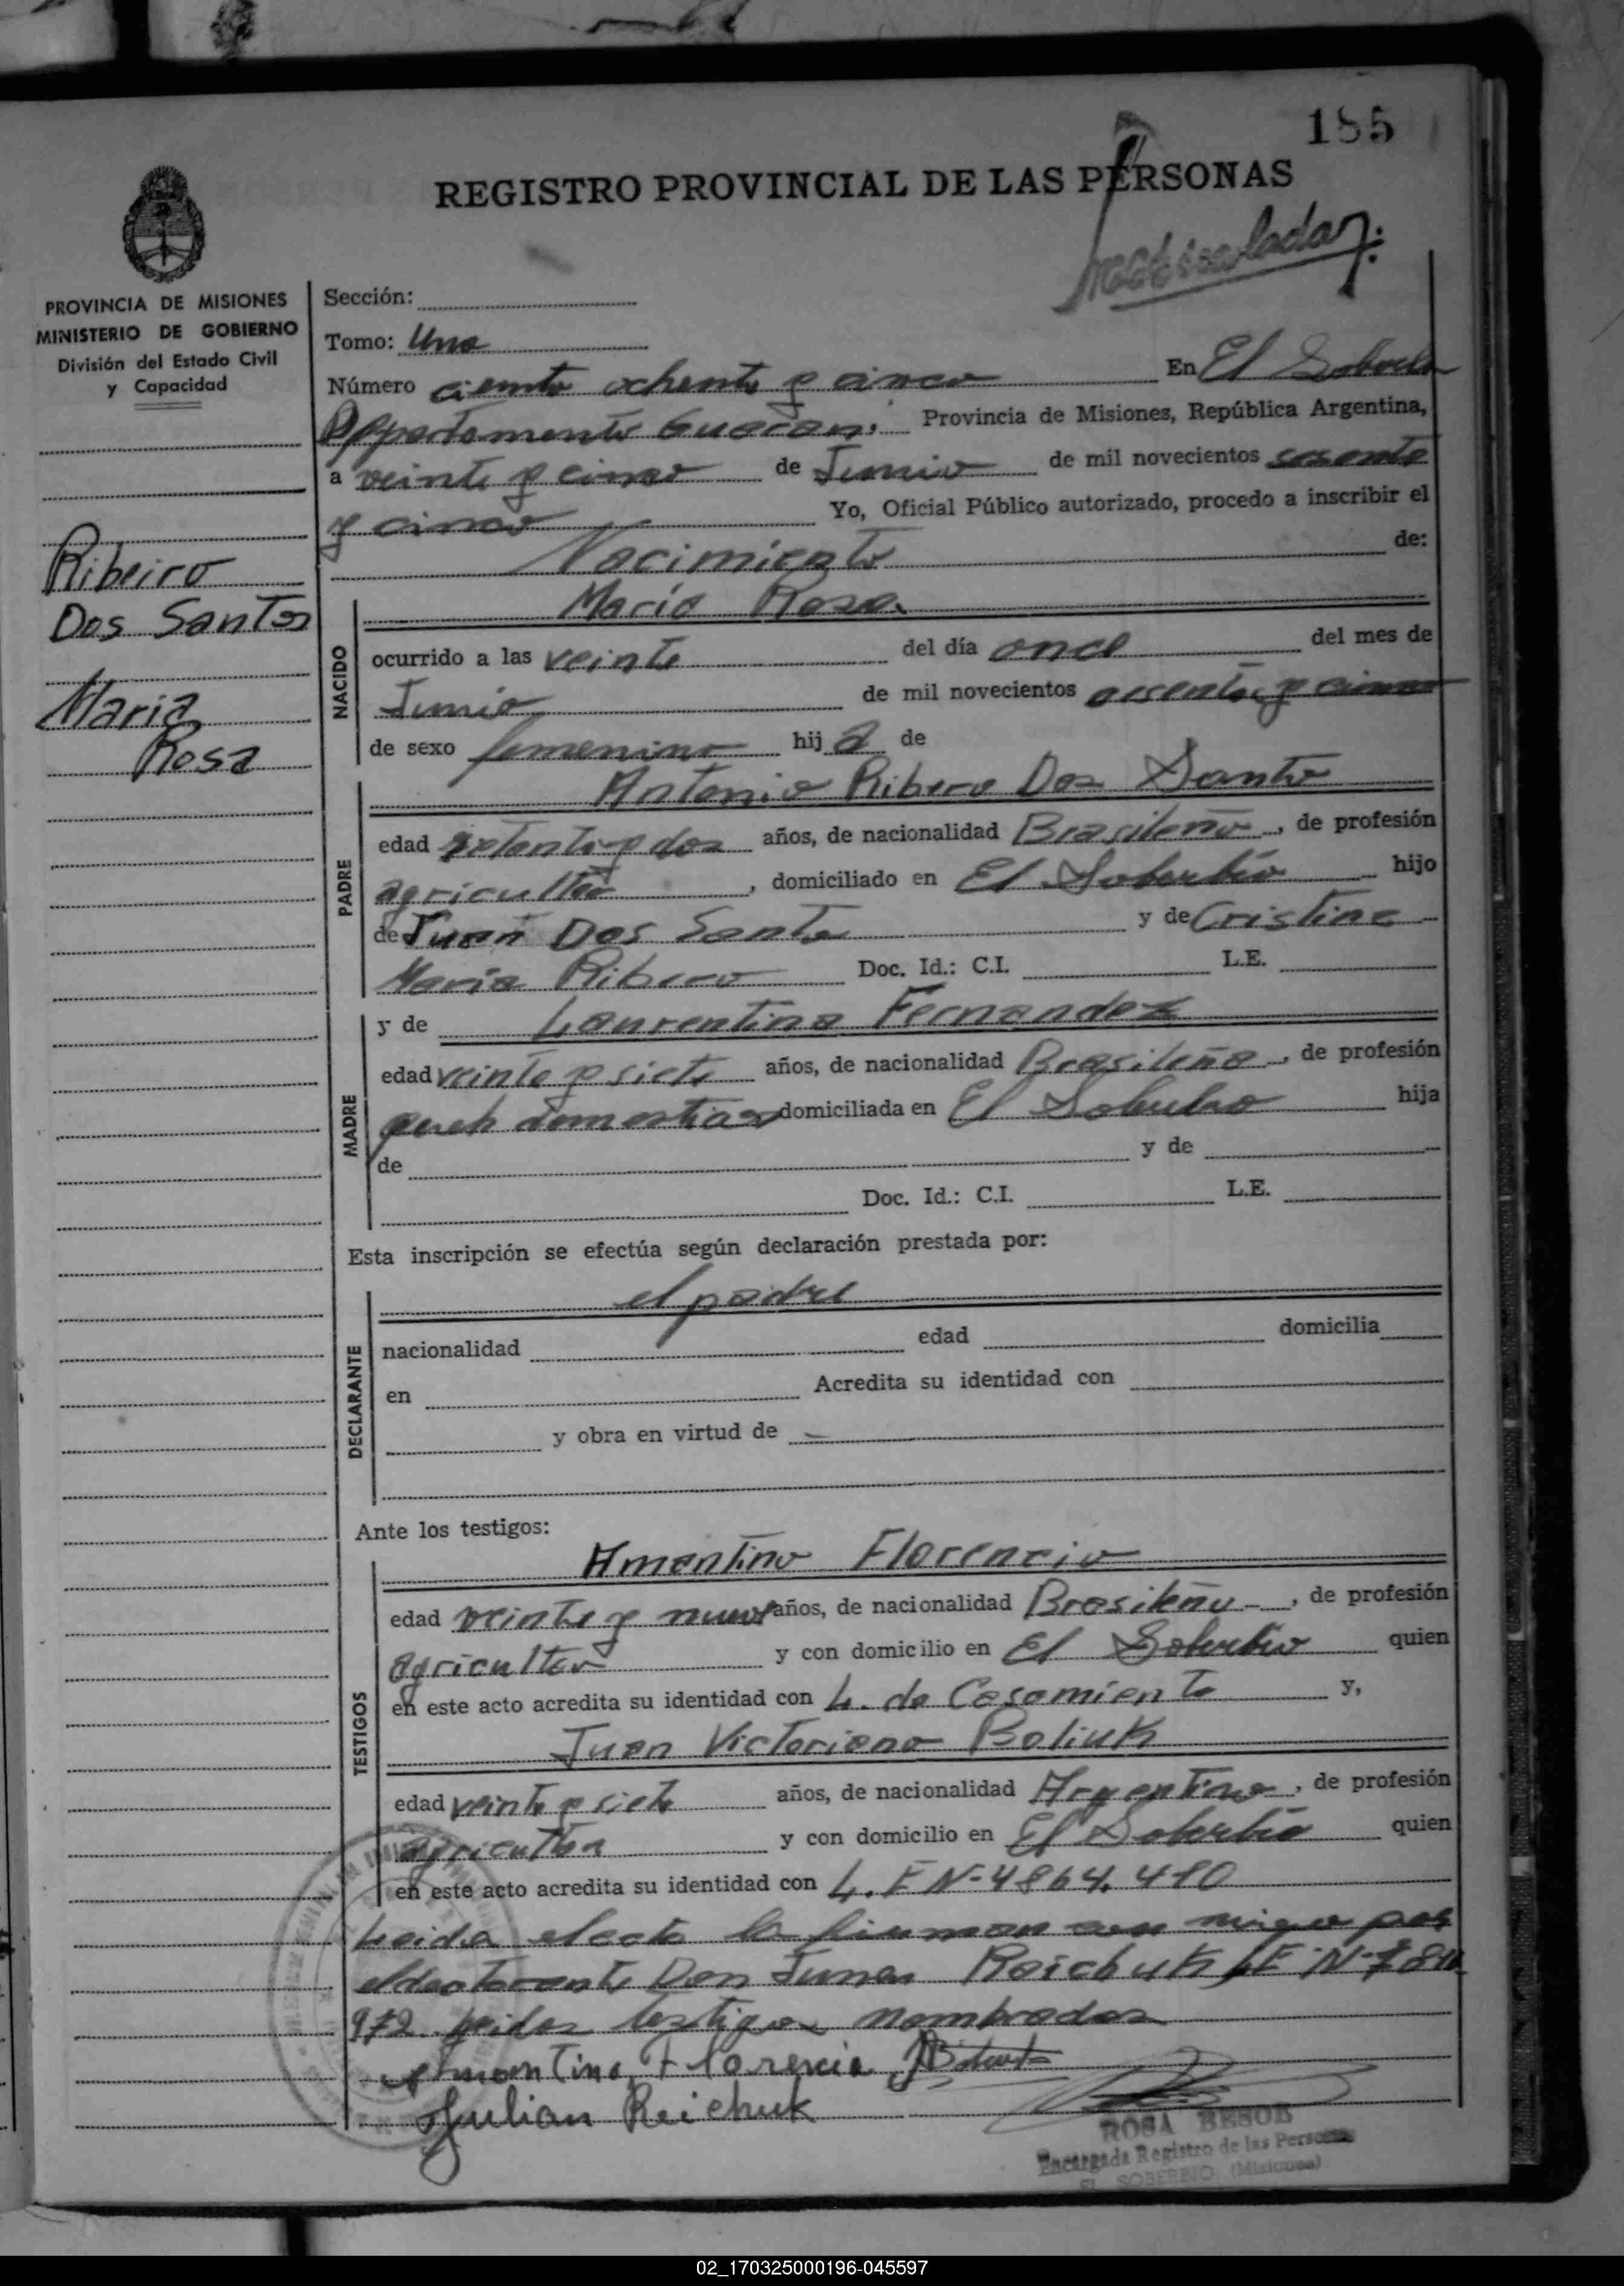 185
REGISTRO PROVINCIAL DE LAS PERSONAS
PROVINCIA DE MISIONES
MINISTERIO DE GOBIERNO
División del Estado Civil
y Capacidad
Ribeiro
Dos Santos
Maria
Rosa
Sección:
Tomo: Uno
Número ciento ochenta y cinco En El Soberbio
Departamento Guarani Provincia de Misiones, República Argentina,
a veinte y cinco de Junio de mil novecientos sesenta
y cinco Yo, Oficial Público autorizado, procedo a inscribir el
Nacimiento de:
NACIDO
María Rosa
ocurrido a las veinte del día once del mes de
Junio de mil novecientos sesenta y cinco
de sexo femenino hij a de
PADRE
Antonio Ribero Dos Santo
edad y dos años, de nacionalidad Brasileño, de profesión
agricultor, domiciliado en El Soberbio hijo
de Juan Dos Santo y de Cristina
María Ribero Doc. Id.: C.I. L.E.
MADRE
y de Laurentina Fernandez
edad veinte y siete años, de nacionalidad Brasileña, de profesión
domesticos domiciliada en El Soberbio hija
de y de
Doc. Id.: C.I. L.E.
Esta inscripción se efectúa según declaración prestada por:
DECLARANTE
el padre
nacionalidad edad domicilia
en Acredita su identidad con
y obra en virtud de
Ante los testigos:
TESTIGOS
Amentino Florencio
edad veinte y nueve años, de nacionalidad Brasileño, de profesión
agricultor y con domicilio en El Soberbio quien
en este acto acredita su identidad con L. de Casamiento y,
Juan Victoriano Boliuk
edad veinte y siete años, de nacionalidad Argentino, de profesión
agricultor y con domicilio en El Soberbio quien
en este acto acredita su identidad con L. E N-4864.410
Leida el acta la firman con migo por
el declarante Don Reichuk L.E N-
972 testigos nombrados
Amontino Florencio
Julian Reichuk
ROSA BESOB
Encargada Registro de las Personas
EL SOBERBIO (Misiones)
02_170325000196-045597